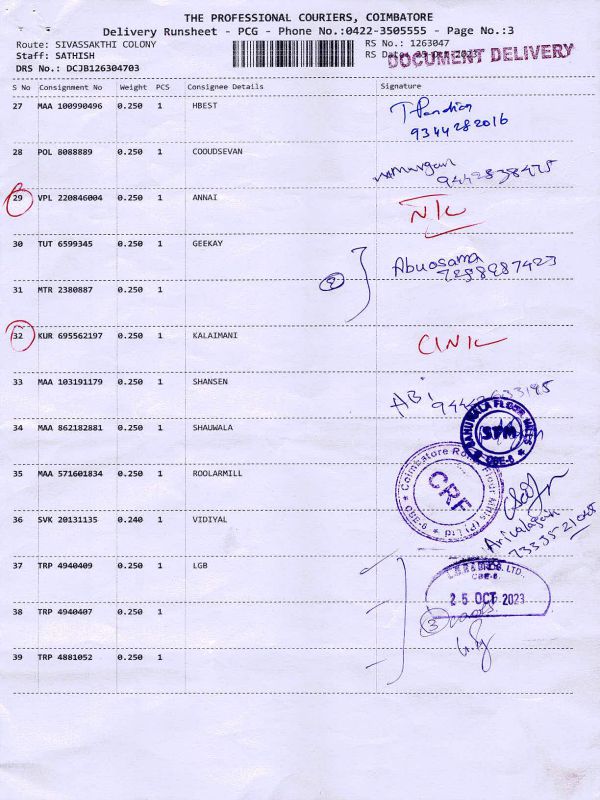 THE PROFESSIONAL COURIERS, COIMBATORE
Delivery Runsheet - PCG - Phone No.:0422-3505555 - Page No.:3
Route: SIVASSAKTHI COLONY
RS No.: 1263047
Staff: SATHISH
RS Date:
DOCUMENT DELIVERY
DRS No.: DCJB126304703
S No Consignment No Weight PCS Consignee Details Signature
27 MAA 100990496 0.250 1 HBEST
T. Pandian
9344282016
28 POL 8088889 0.250 1 COOUDSEVAN
Murgan
9442838475
29 VPL 220846004 0.250 1 ANNAI N/C
30 TUT 6599345 0.250 1 GEEKAY
Abuosama
7298987423
2
31 MTR 2380887 0.250 1
32 KUR 695562197 0.250 1 KALAIMANI
33 MAA 103191179 0.250 1 SHANSEN
ABi
34 MAA 862182881 0.250 1 SHAUWALA
STM
CBE-8
35 MAA 571601834 0.250 1 ROOLARMILL
Coimbatore Roller Flour Mills (P) Ltd
CRF
36 SVK 20131135 0.240 1 VIDIYAL
Arivalagan
37 TRP 4940409 0.250 1 LGB
CBE-6.
25 OCT 2023
38 TRP 4940407 0.250 1
3
39 TRP 4881052 0.250 1